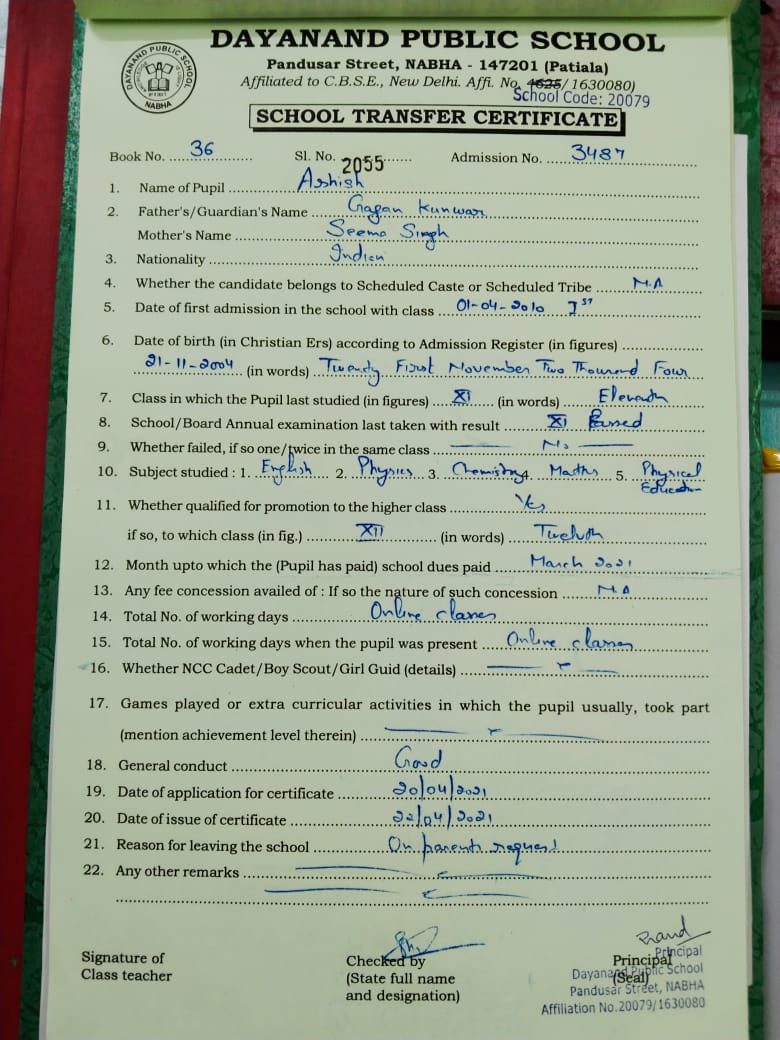 DAYANAND PUBLIC SCHOOL
DAYANAND PUBLIC SCHOOL
NABHA
Pandusar Street, NABHA - 147201 (Patiala)
Affiliated to C.B.S.E., New Delhi. Affi. No. 4625/1630080)
School Code: 20079
SCHOOL TRANSFER CERTIFICATE
Book No. 36 Sl. No. 2055 Admission No. 3487
1. Name of Pupil Ashish
2. Father's/Guardian's Name Gagan Kunwar
Mother's Name Seema Singh
3. Nationality Indian
4. Whether the candidate belongs to Scheduled Caste or Scheduled Tribe N.A
5. Date of first admission in the school with class 01-04-2010 Ist
6. Date of birth (in Christian Ers) according to Admission Register (in figures)
21-11-2004 (in words) Twenty First November Two Thousand Four
7. Class in which the Pupil last studied (in figures) XI (in words) Eleventh
8. School/Board Annual examination last taken with result XI Passed
9. Whether failed, if so one/twice in the same class No
10. Subject studied : 1. English 2. Physics 3. Chemistry 4. Maths 5. Physical
Education
11. Whether qualified for promotion to the higher class Yes
if so, to which class (in fig.) XII (in words) Twelveth
12. Month upto which the (Pupil has paid) school dues paid March 2021
13. Any fee concession availed of : If so the nature of such concession N.A
14. Total No. of working days Online classes
15. Total No. of working days when the pupil was present Online classes
16. Whether NCC Cadet/Boy Scout/Girl Guid (details)
17. Games played or extra curricular activities in which the pupil usually, took part
(mention achievement level therein)
18. General conduct Good
19. Date of application for certificate 20/04/2021
20. Date of issue of certificate 22/04/2021
21. Reason for leaving the school On parents request
22. Any other remarks
Signature of
Class teacher
Checked by
(State full name
and designation)
Principal
(Seal)
Principal
Dayanand Public School
Pandusar Street, NABHA
Affiliation No.20079/1630080